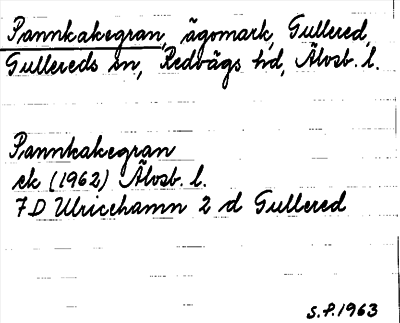 Pannkakegran, ägomark, Gullered,
Gullereds sn, Redvägs hd, Älvsb. l.
Pannkakegran
ek (1962) Älvsb. l.
7D Ulricehamn 2 d Gullered
S.P. 1963